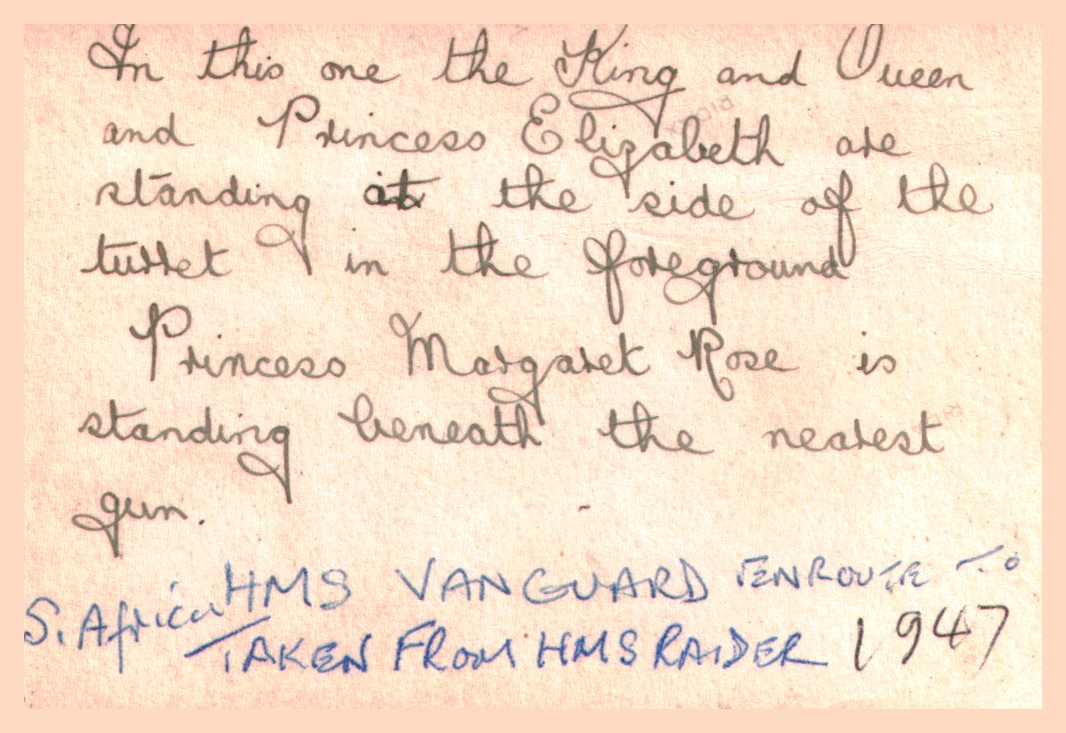 In this one the King and Queen
and Princess Elizabeth are
standing at the side of the
turret in the foreground
Princess Margaret Rose is
standing beneath the nearest
gun.
HMS VANGUARD ENROUTE TO
S. Africa
TAKEN FROM HMS RAIDER 1947